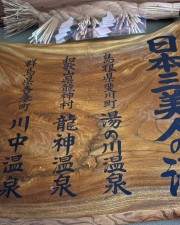 日本三美人の湯
島根県斐川町
湯の川温泉
和歌山県龍神村
龍神温泉
群馬県吾妻町
川中温泉